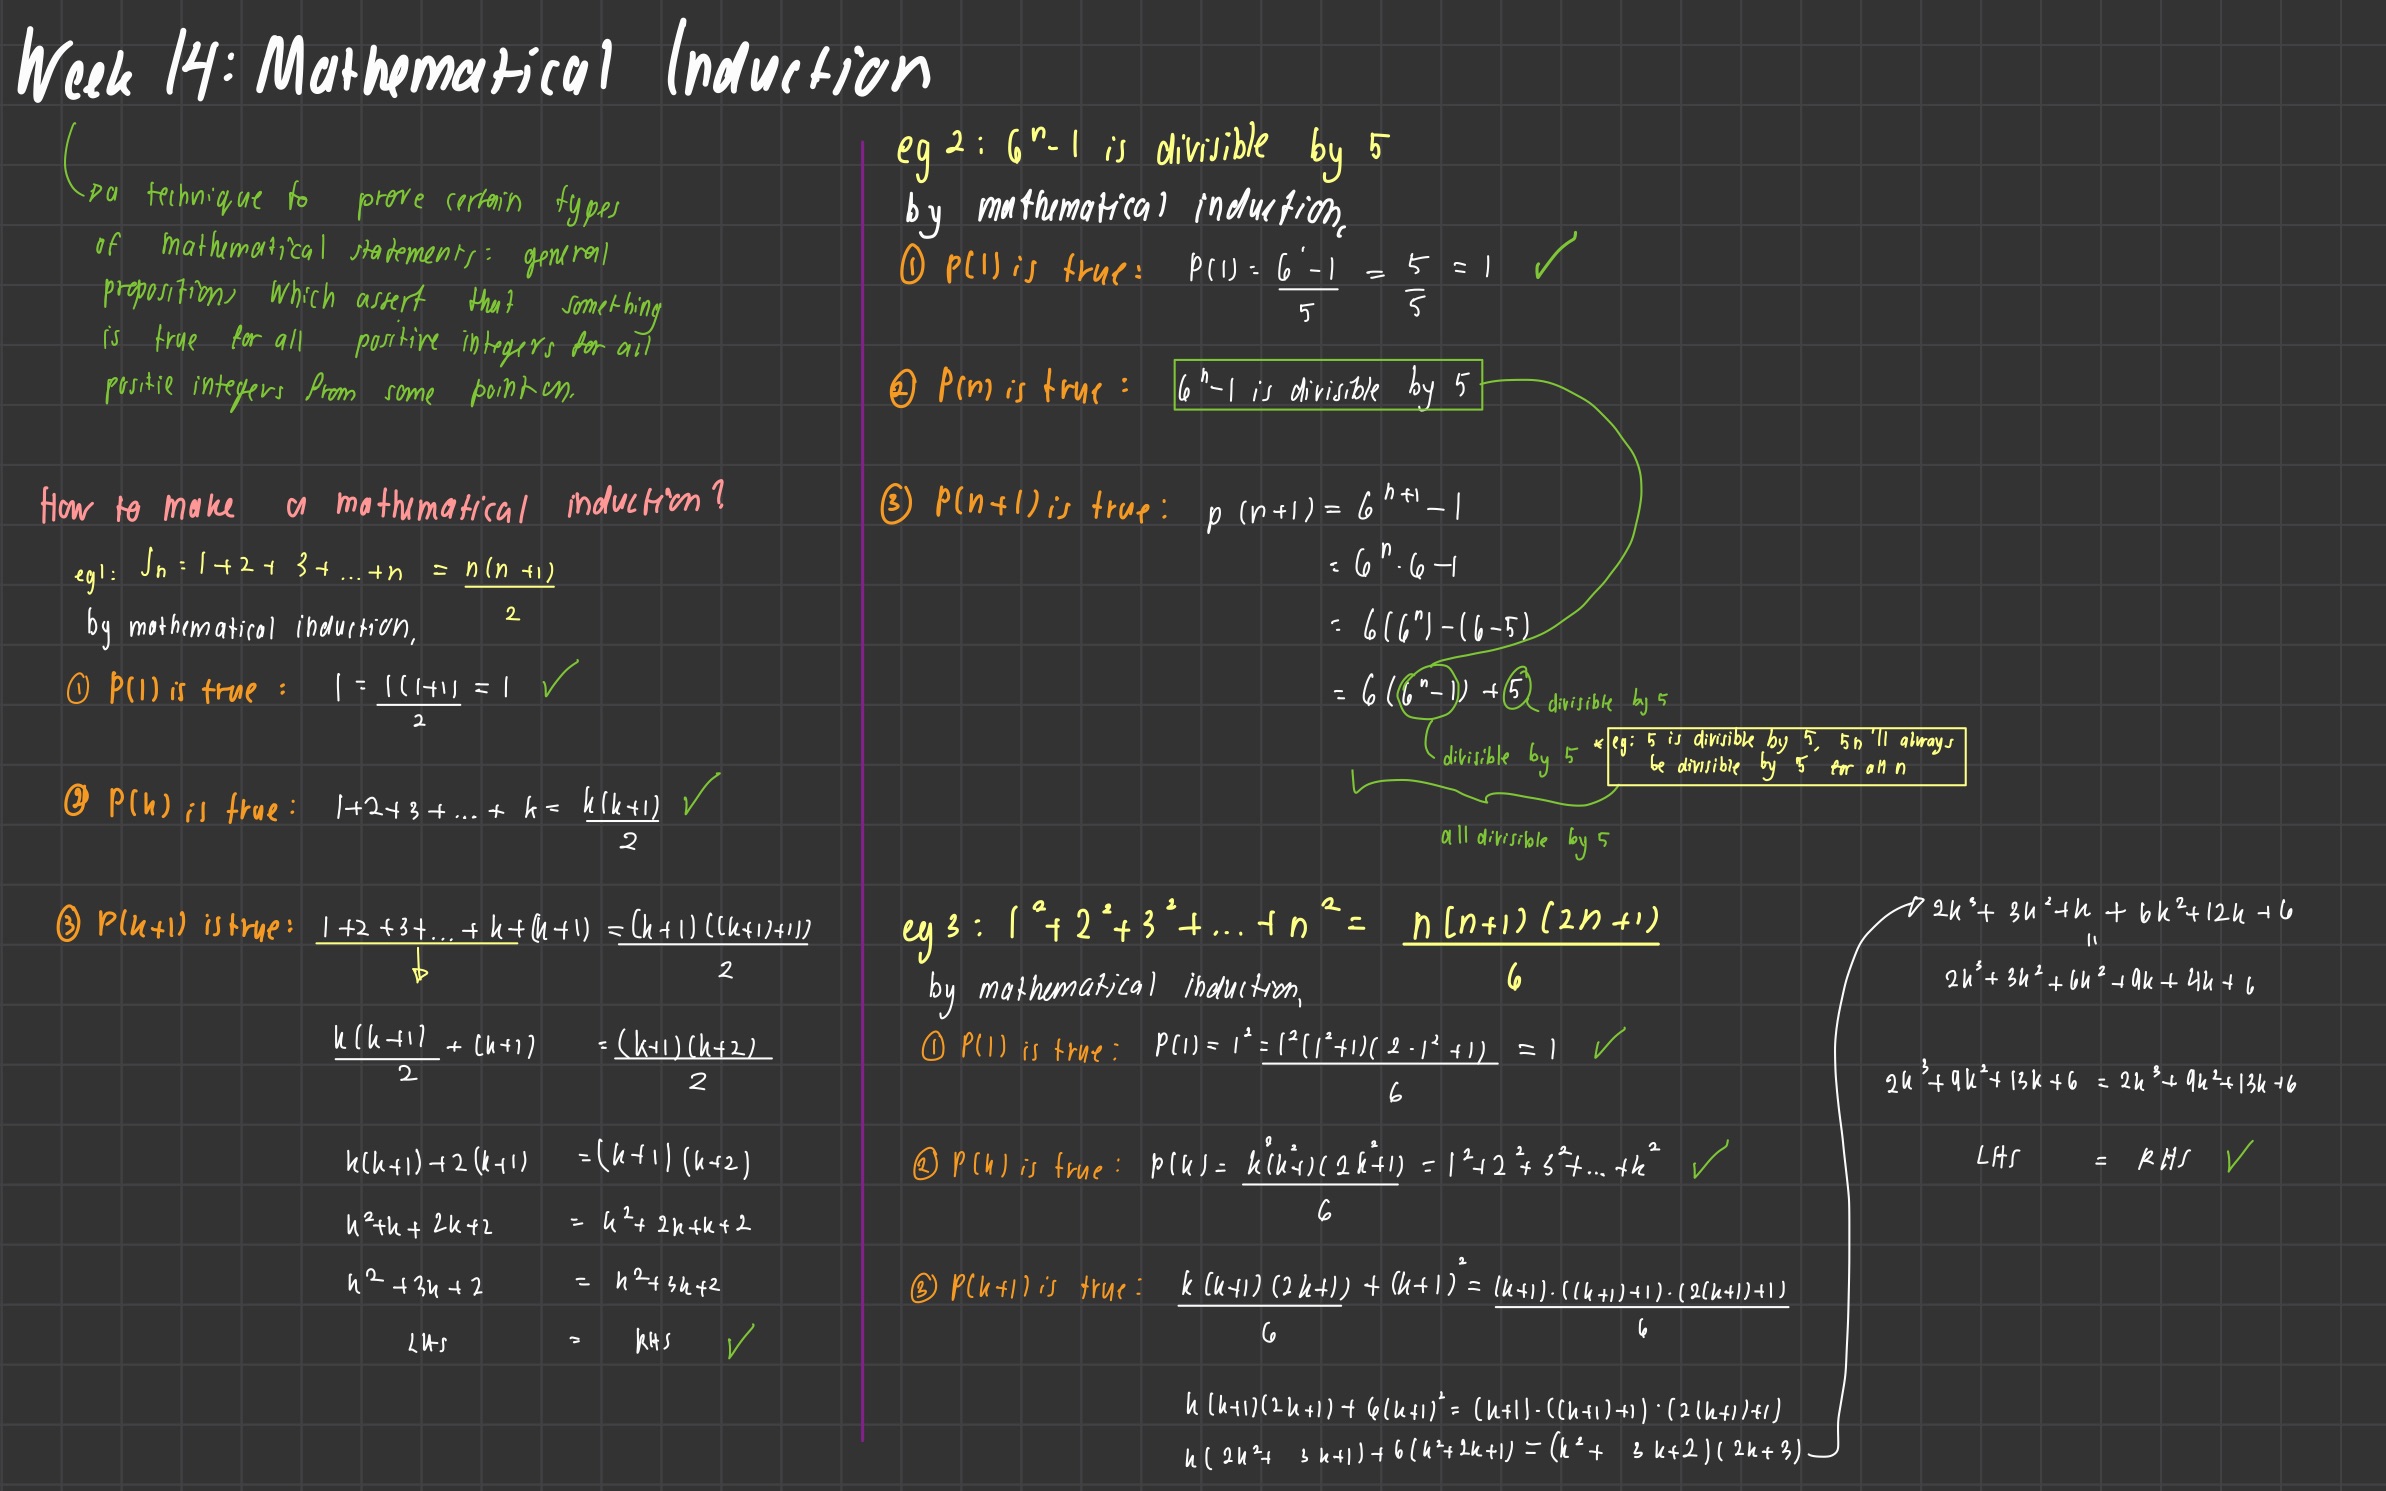 Week 14: Mathematical Induction
a technique to prove certain types
of mathematical statements: general
propositions which assert that something
is true for all positive integers for all
positie integers from some point on.
How to make a mathematical induction?
eg1: Sn = 1+2+3+...+n = n(n+1)/2
by mathematical induction,
① P(1) is true: 1 = 1(1+1)/2 = 1 ✓
② P(k) is true: 1+2+3+...+k = k(k+1)/2 ✓
③ P(k+1) is true: 1+2+3+...+k+(k+1) = (k+1)((k+1)+1)/2
k(k+1)/2 + (k+1) = (k+1)(k+2)/2
k(k+1)+2(k+1) = (k+1)(k+2)
k²+k+2k+2 = k²+2k+k+2
k²+3k+2 = k²+3k+2
LHS = RHS ✓
eg 2: 6ⁿ-1 is divisible by 5
by mathematical induction,
① P(1) is true: P(1) = 6¹-1/5 = 5/5 = 1 ✓
② P(n) is true: 6ⁿ-1 is divisible by 5
③ P(n+1) is true: P(n+1) = 6ⁿ⁺¹-1
= 6ⁿ·6-1
= 6(6ⁿ)-(6-5)
= 6(6ⁿ-1)+5 divisible by 5
divisible by 5 * eg: 5 is divisible by 5, 5n'll always
be divisible by 5 for all n
all divisible by 5
eg 3: 1²+2²+3²+...+n² = n(n+1)(2n+1)/6
by mathematical induction,
① P(1) is true: P(1) = 1² = 1²(1²+1)(2·1²+1)/6 = 1 ✓
② P(k) is true: P(k) = k²(k²+1)(2k²+1)/6 = 1²+2²+3²+...+k² ✓
③ P(k+1) is true: k(k+1)(2k+1)/6 + (k+1)² = (k+1)·((k+1)+1)·(2(k+1)+1)/6
k(k+1)(2k+1)+6(k+1)² = (k+1)·((k+1)+1)·(2(k+1)+1)
k(2k²+3k+1)+6(k²+2k+1) = (k²+3k+2)(2k+3)
2k³+3k²+k+6k²+12k+6
=
2k³+3k²+6k²+9k+4k+6
2k³+9k²+13k+6 = 2k³+9k²+13k+6
LHS = RHS ✓